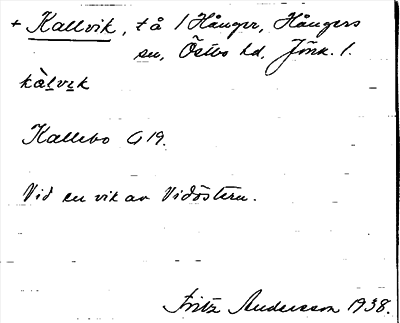 + Kallvik, t å 1 Hånger, Hångers
sn, Östbo hd, Jönk. l.
kàlvik
Kallebo G 19.
Vid en vik av Vidöstern.
Fritz Andersson 1938.